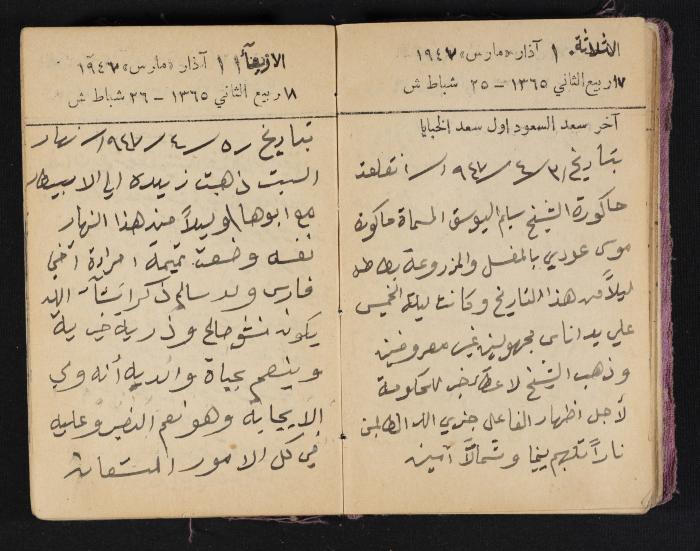 الثلاثة ١٠ آذار «مارس» ١٩٤٧
١٧ ربيع الثاني ١٣٦٥ – ٢٥ شباط ش
آخر سعد السعود اول سعد الخبايا
بتاريخ ٣/ ٤/ ١٩٤٧/ انقلعت
حاكورة الشيخ سليم اليوسف المسماة حاكورة
موسى عودي بالمغسل والمزروعة بطاطه
ليلاً من هذا التاريخ وكانت ليلة الخميس
على يد اناس مجهولين غير معروفين
وذهب الشيخ لاعطا خبر للحكومة
لأجل اظهار الفاعل جزى الله الظالمين
ناراً تلهم يميناً وشمالاً آمين
الاربعاء ١١ آذار «مارس» ١٩٤٧
١٨ ربيع الثاني ١٣٦٥ – ٢٦ شباط ش
بتاريخ ٥/ ٤/ ١٩٤٧/ نهار
السبت ذهبت زبيده الى
مع ابوها وليلاً من هذا النهار
نفسه وضعت تميمة امرأة اخي
فارس ولد سالم ذكر انشآت الله
يكون نشؤ صالح وذرية خيرية
وينعم بحياة والديه أنه ولي
الايجابة وهو نعم النصير وعليه
في كل الامور المستعان